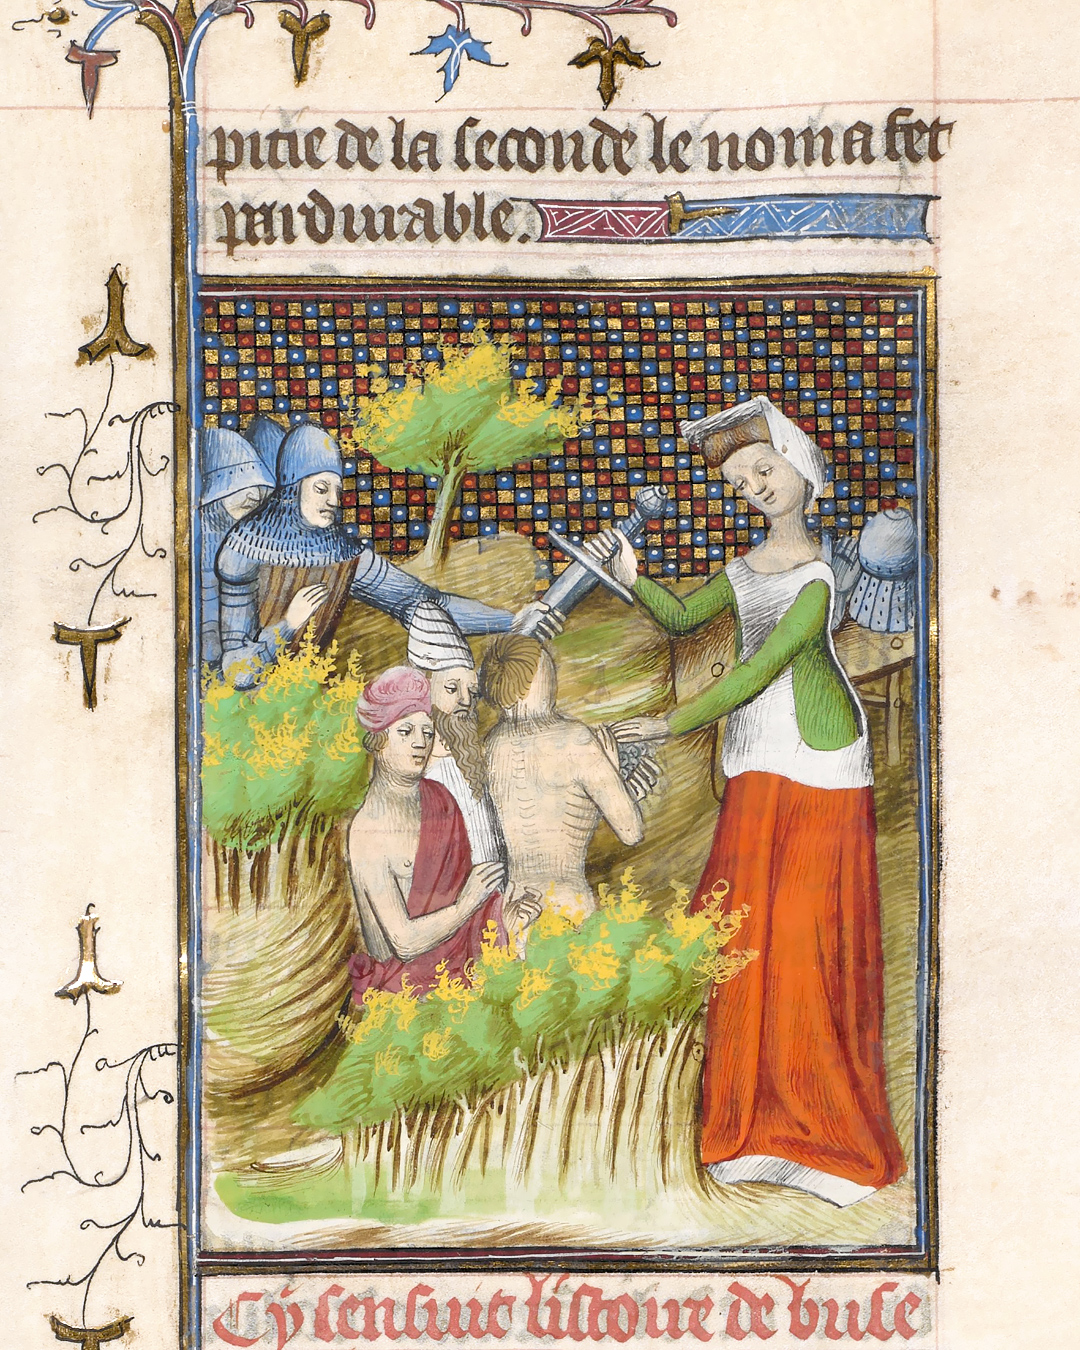 pitie de la seconde le nom a fet
pardurable.
Cy sensuit listoire de buse